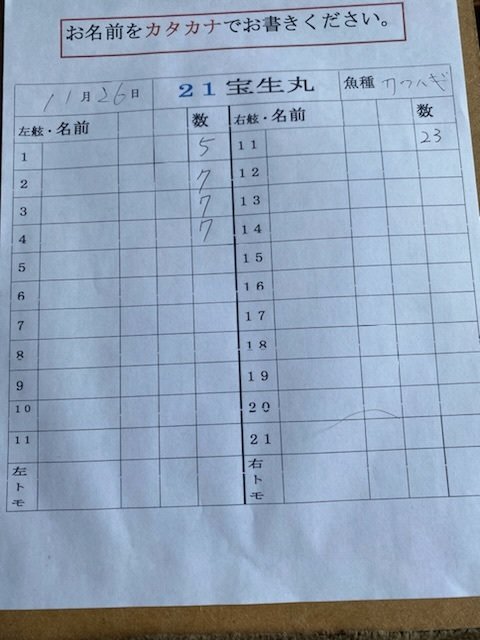 お名前をカタカナでお書きください。
11月26日 21宝生丸 魚種 カワハギ
左舷・名前 数 右舷・名前 数
1 5 11 23
2 7 12
3 7 13
4 7 14
5 15
6 16
7 17
8 18
9 19
10 20
11 21
左トモ 右トモ